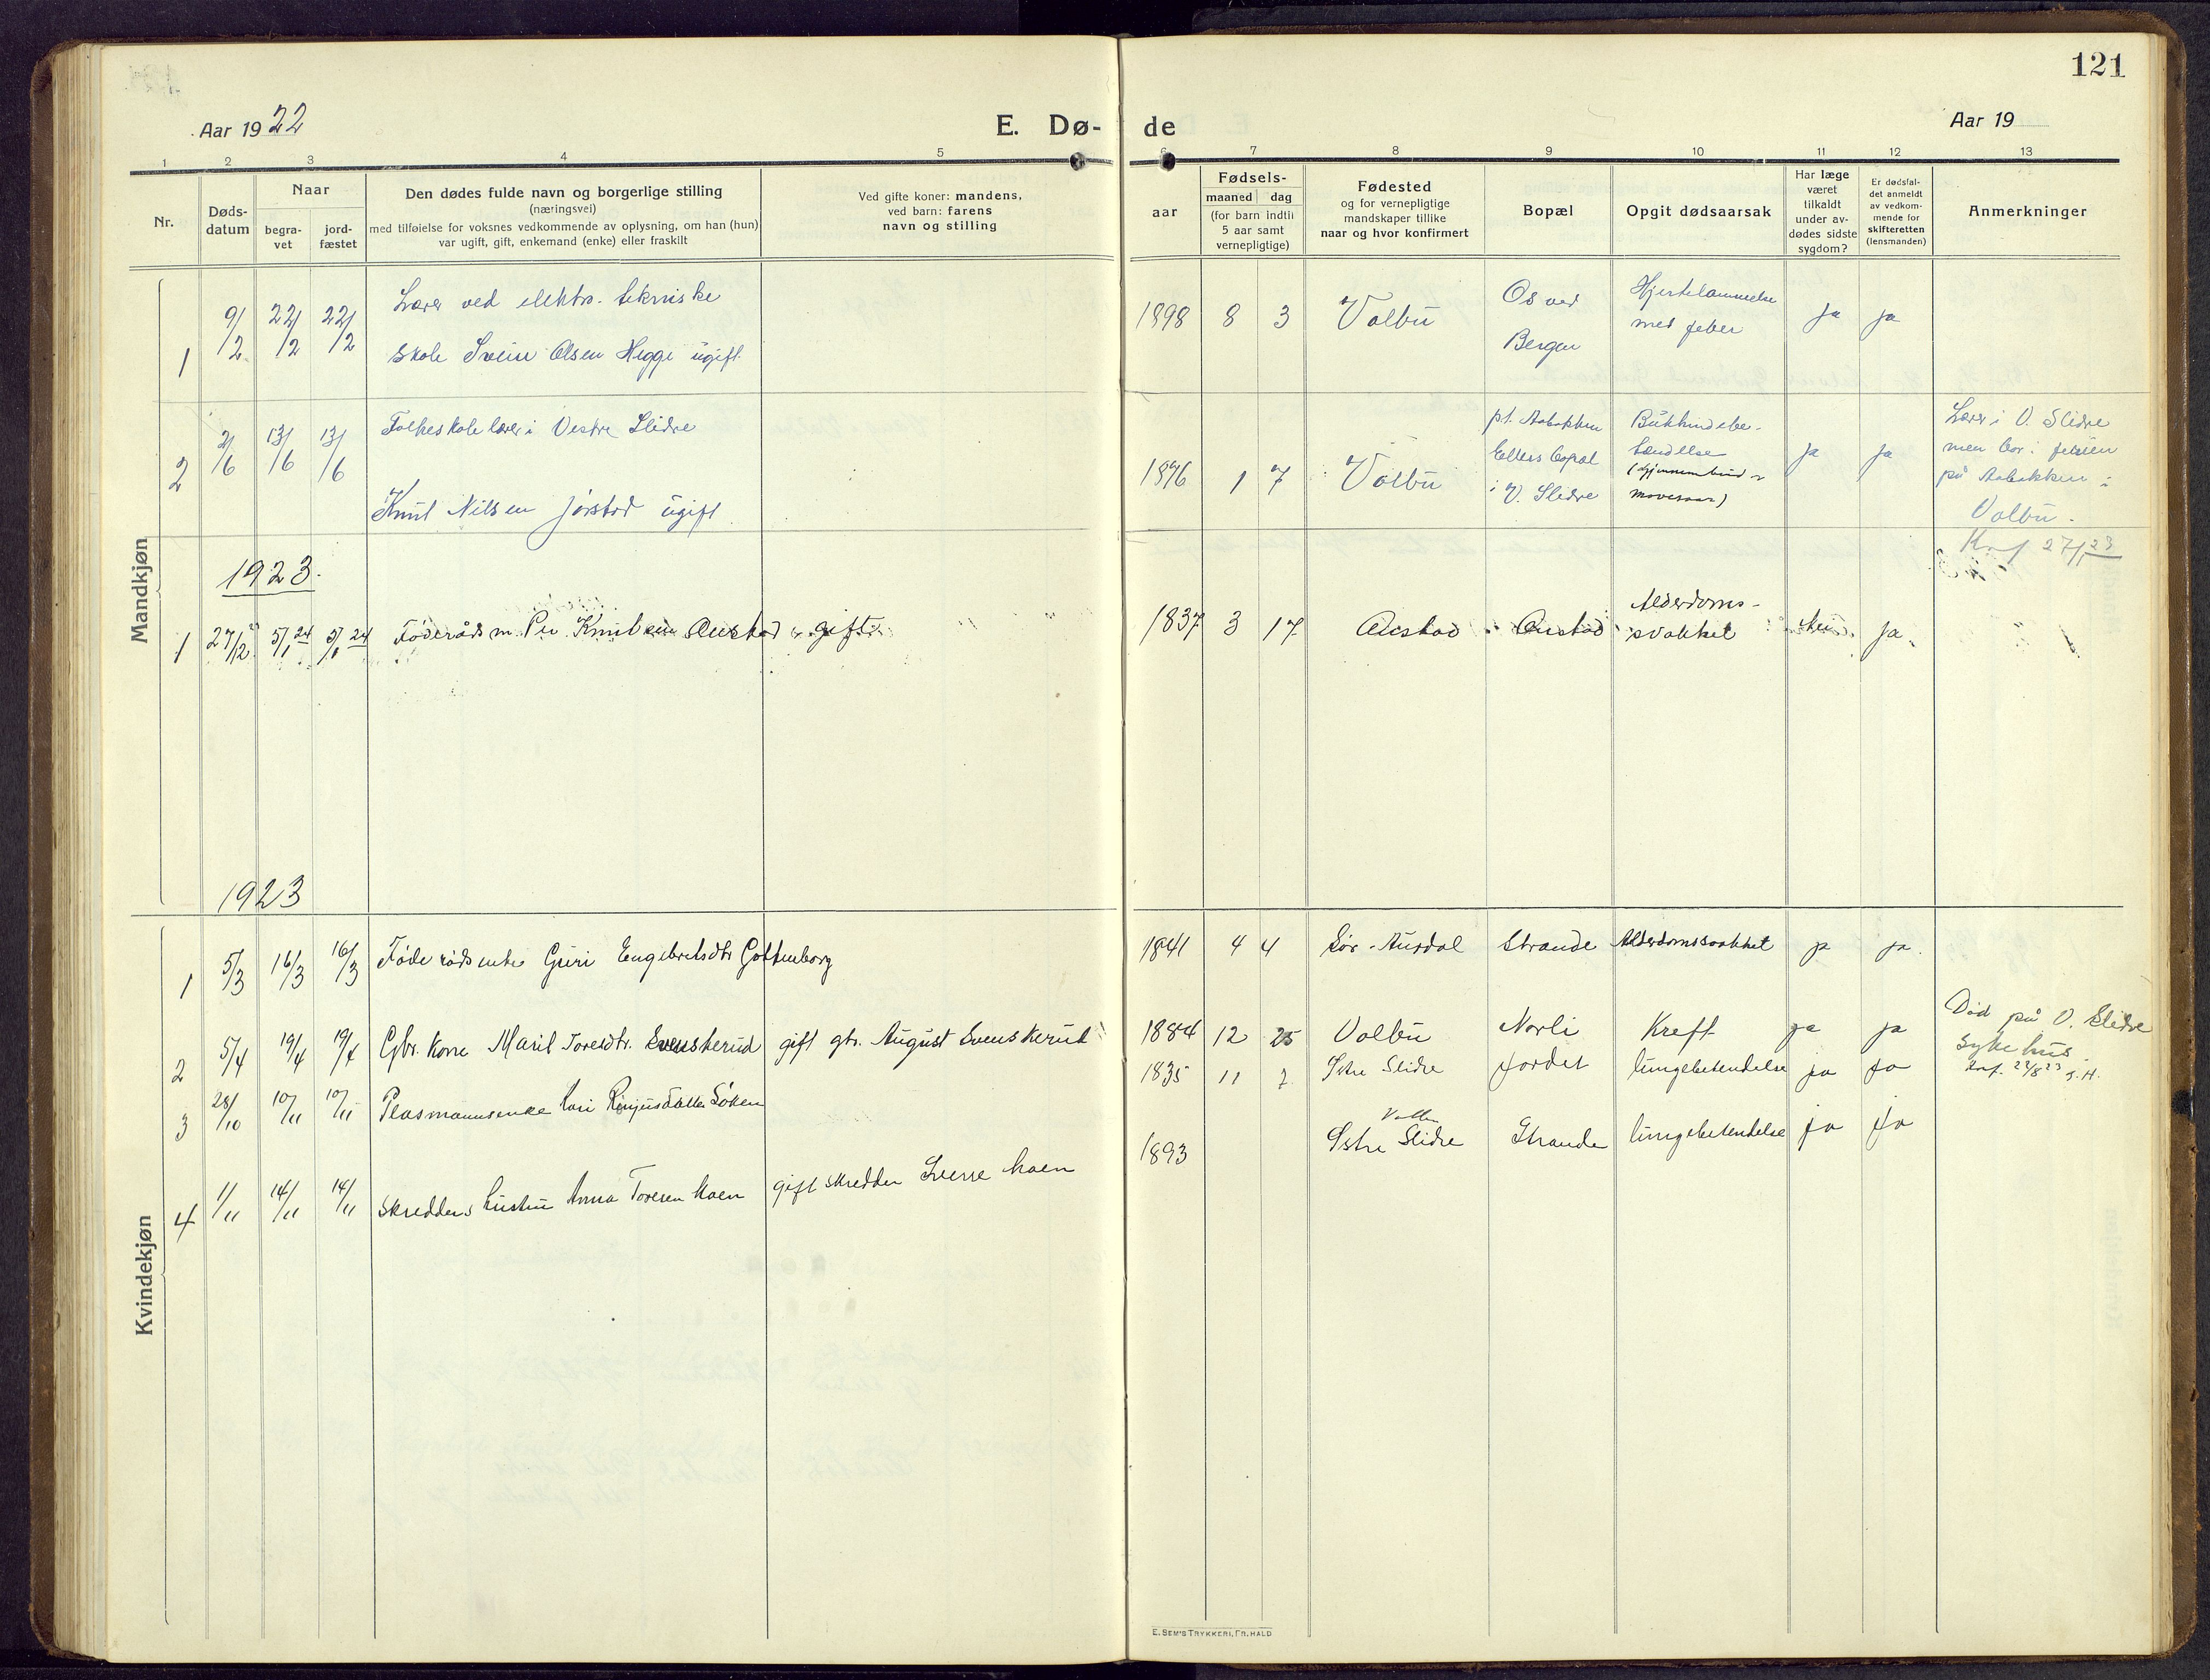 121
Aar 1922
E. Dø-
de
Aar 19
1 2 3 4 5
6 7 8 9 10 11 12 13
Nr.
Døds-
datum
Naar
begra-
vet
jord-
fæstet
Den dødes fulde navn og borgerlige stilling
(næringsvei)
med tilføielse for voksnes vedkommende av oplysning, om han (hun)
var ugift, gift, enkemand (enke) eller fraskilt
Ved gifte koner: mandens,
ved barn: farens
navn og stilling
aar
Fødsels-
maaned dag
(for barn indtil
5 aar samt
vernepligtige)
Fødested
og for vernepligtige
mandskaper tillike
naar og hvor konfirmert
Bopæl
Opgit dødsaarsak
Har læge
været
tilkaldt
under av-
dødes sidste
sygdom?
Er dødsfal-
det anmeldt
av vedkom-
mende for
skifteretten
(lensmanden)
Anmerkninger
Mandkjøn
1 9/2 22/2 22/2
Lærer ved elektro-tekniske
skole Svein Olsen Hegge ugift
1898 8 3 Volbu
Os ved
Bergen
Hjertelammelse
med feber
ja ja
2 2/6 13/6 13/6
Folkeskolelærer i Vestre Slidre
Knut Nilsen Jørstad ugift
1896 1 7 Volbu
p.t. Aabakken
Ellers bopæl
i V. Slidre
Bukhindebe-
tændelse
ja ja
Lærer i V. Slidre
men bor i ferien
på Aabakken i
Volbu.
27/1 23
1923.
1 27/12 5/1 24 5/1 24 Føderådsm. Per Knutsen Austad gift
1837 3 17 Austad Austad
Alderdoms-
svakket
Nei ja
1923
Kvindekjøn
1 5/3 16/3 16/3 Føderådsenke Guri Engebretsdtr Gottenborg
1841 4 4 Sør-Aurdal Strande Alderdomssvakket ja ja.
2 5/4 19/4 19/4 Gbr. kone Marit Toresdtr. Svenskerud gift gbr. August Svenskerud
1884 12 25 Volbu Norli Kreft ja ja
Død på V. Slidre
Sykehus.
3 28/10 10/11 10/11 Plasmannsenke Kari
1835 11 7 Østre Slidre Jordet lungebetendelse ja ja
4 1/11 14/11 14/11 Skredders hustru Anna Toresen Moen gift skredder Sverre Moen
1893
Østre Slidre Strande lungebetendelse ja ja
E. SEM'S TRYKKERI, FR. HALD